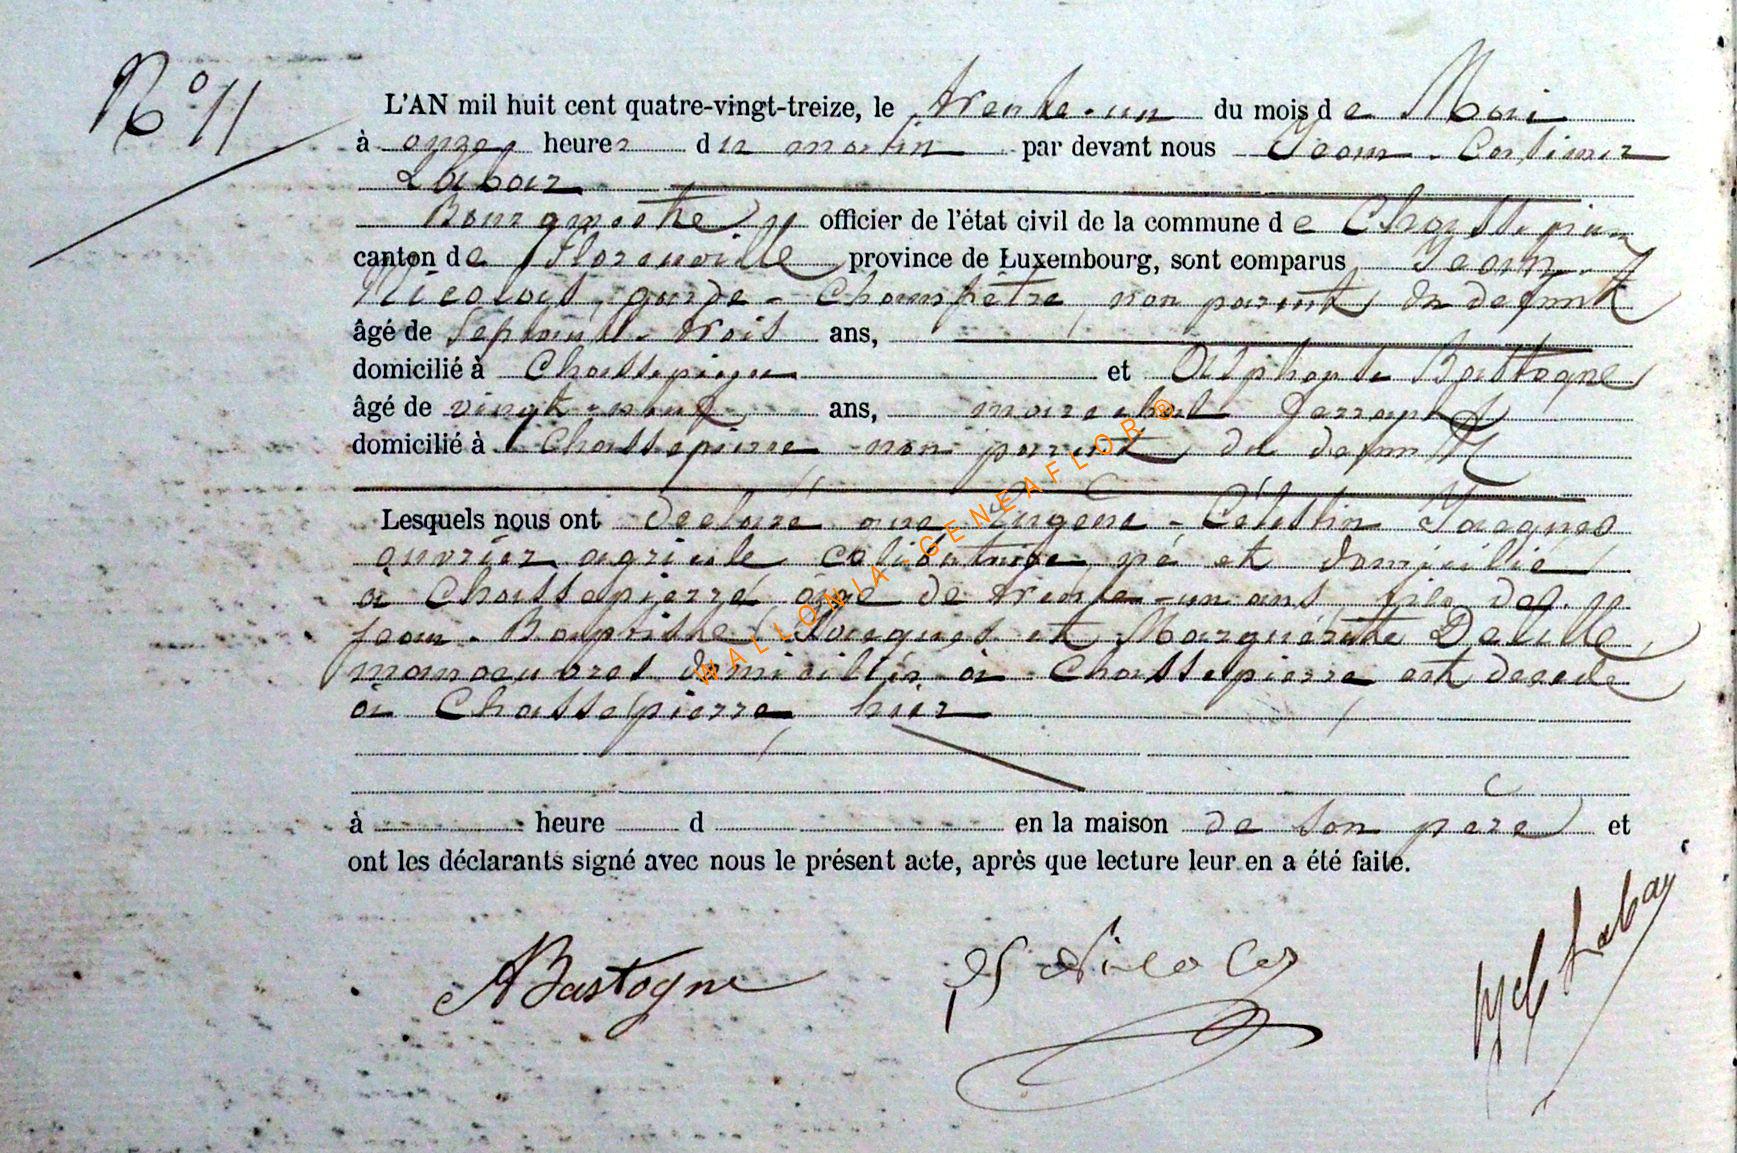 N° 11
L'AN mil huit cent quatre-vingt-treize, le trente-un du mois de Mai
à onze heures du matin par devant nous Jean-Casimir
Labay
Bourgmestre officier de l'état civil de la commune de Chassepierre
canton de Florenville province de Luxembourg, sont comparus Jean
Nicolas, garde-champêtre, non parent du defunt
âgé de septante-trois ans,
domicilié à Chassepierre et Alphonse Bastogne
âgé de vingt-neuf ans, marechal ferrant
domicilié à Chassepierre, non parent du defunt
Lesquels nous ont declaré que Eugène-Célestin Jacques
ouvrier agricole, celibataire, né et domicilié
à Chassepierre, âgé de trente-un ans, fils de
Jean-Baptiste Jacques et Marguérite Delille,
manoeuvres domiciliés à Chassepierre est decede
à Chassepierre, hier
à heure d en la maison de son père et
ont les déclarants signé avec nous le présent acte, après que lecture leur en a été faite.
ABastogne Nicolas Labay
WALLONIA-GENEAFLOR ®